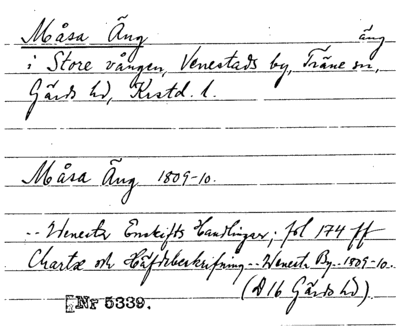 Måsa Äng äng
i Store vången, Venestads by, Träne sn,
Gärds hd, Krstd. l.
Måsa Äng 1809-10.
-- Wenesta Enskifts Handlingar; fol 174 ff
Charta och Häfdebeskrifning -- Wenesta By -- 1809-10.
(D 16 Gärds hd).
Nr 5339.